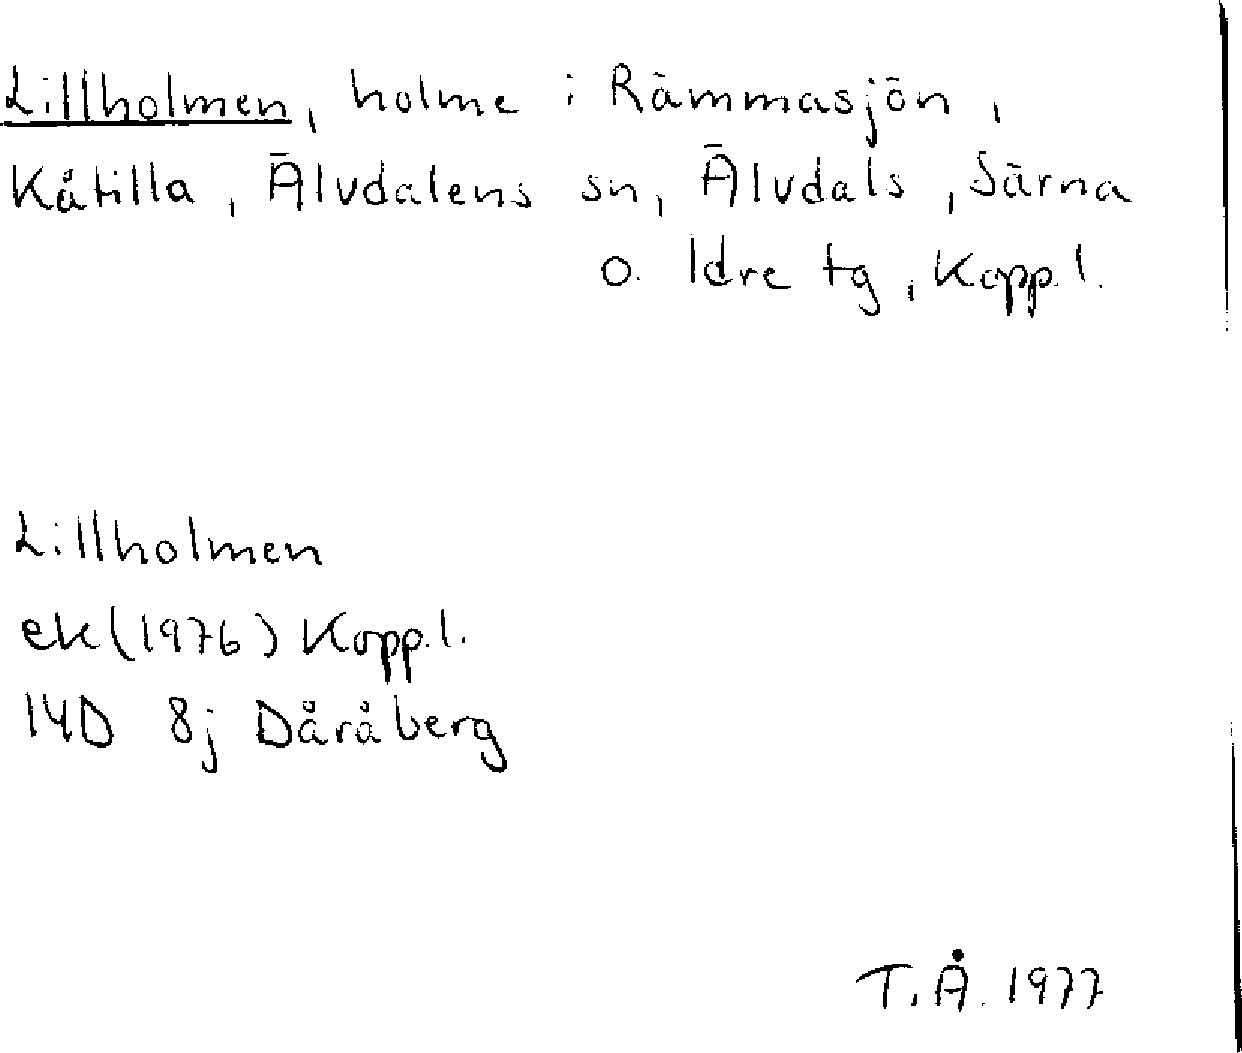 Lillholmen, holme i Rämmasjön,
Kåtilla, Älvdalens sn, Älvdals, Särna
o. Idre tg, Kopp. l.
Lillholmen
ek (1976) Kopp. l.
14D 8j Dåråberg
T. Å. 1977